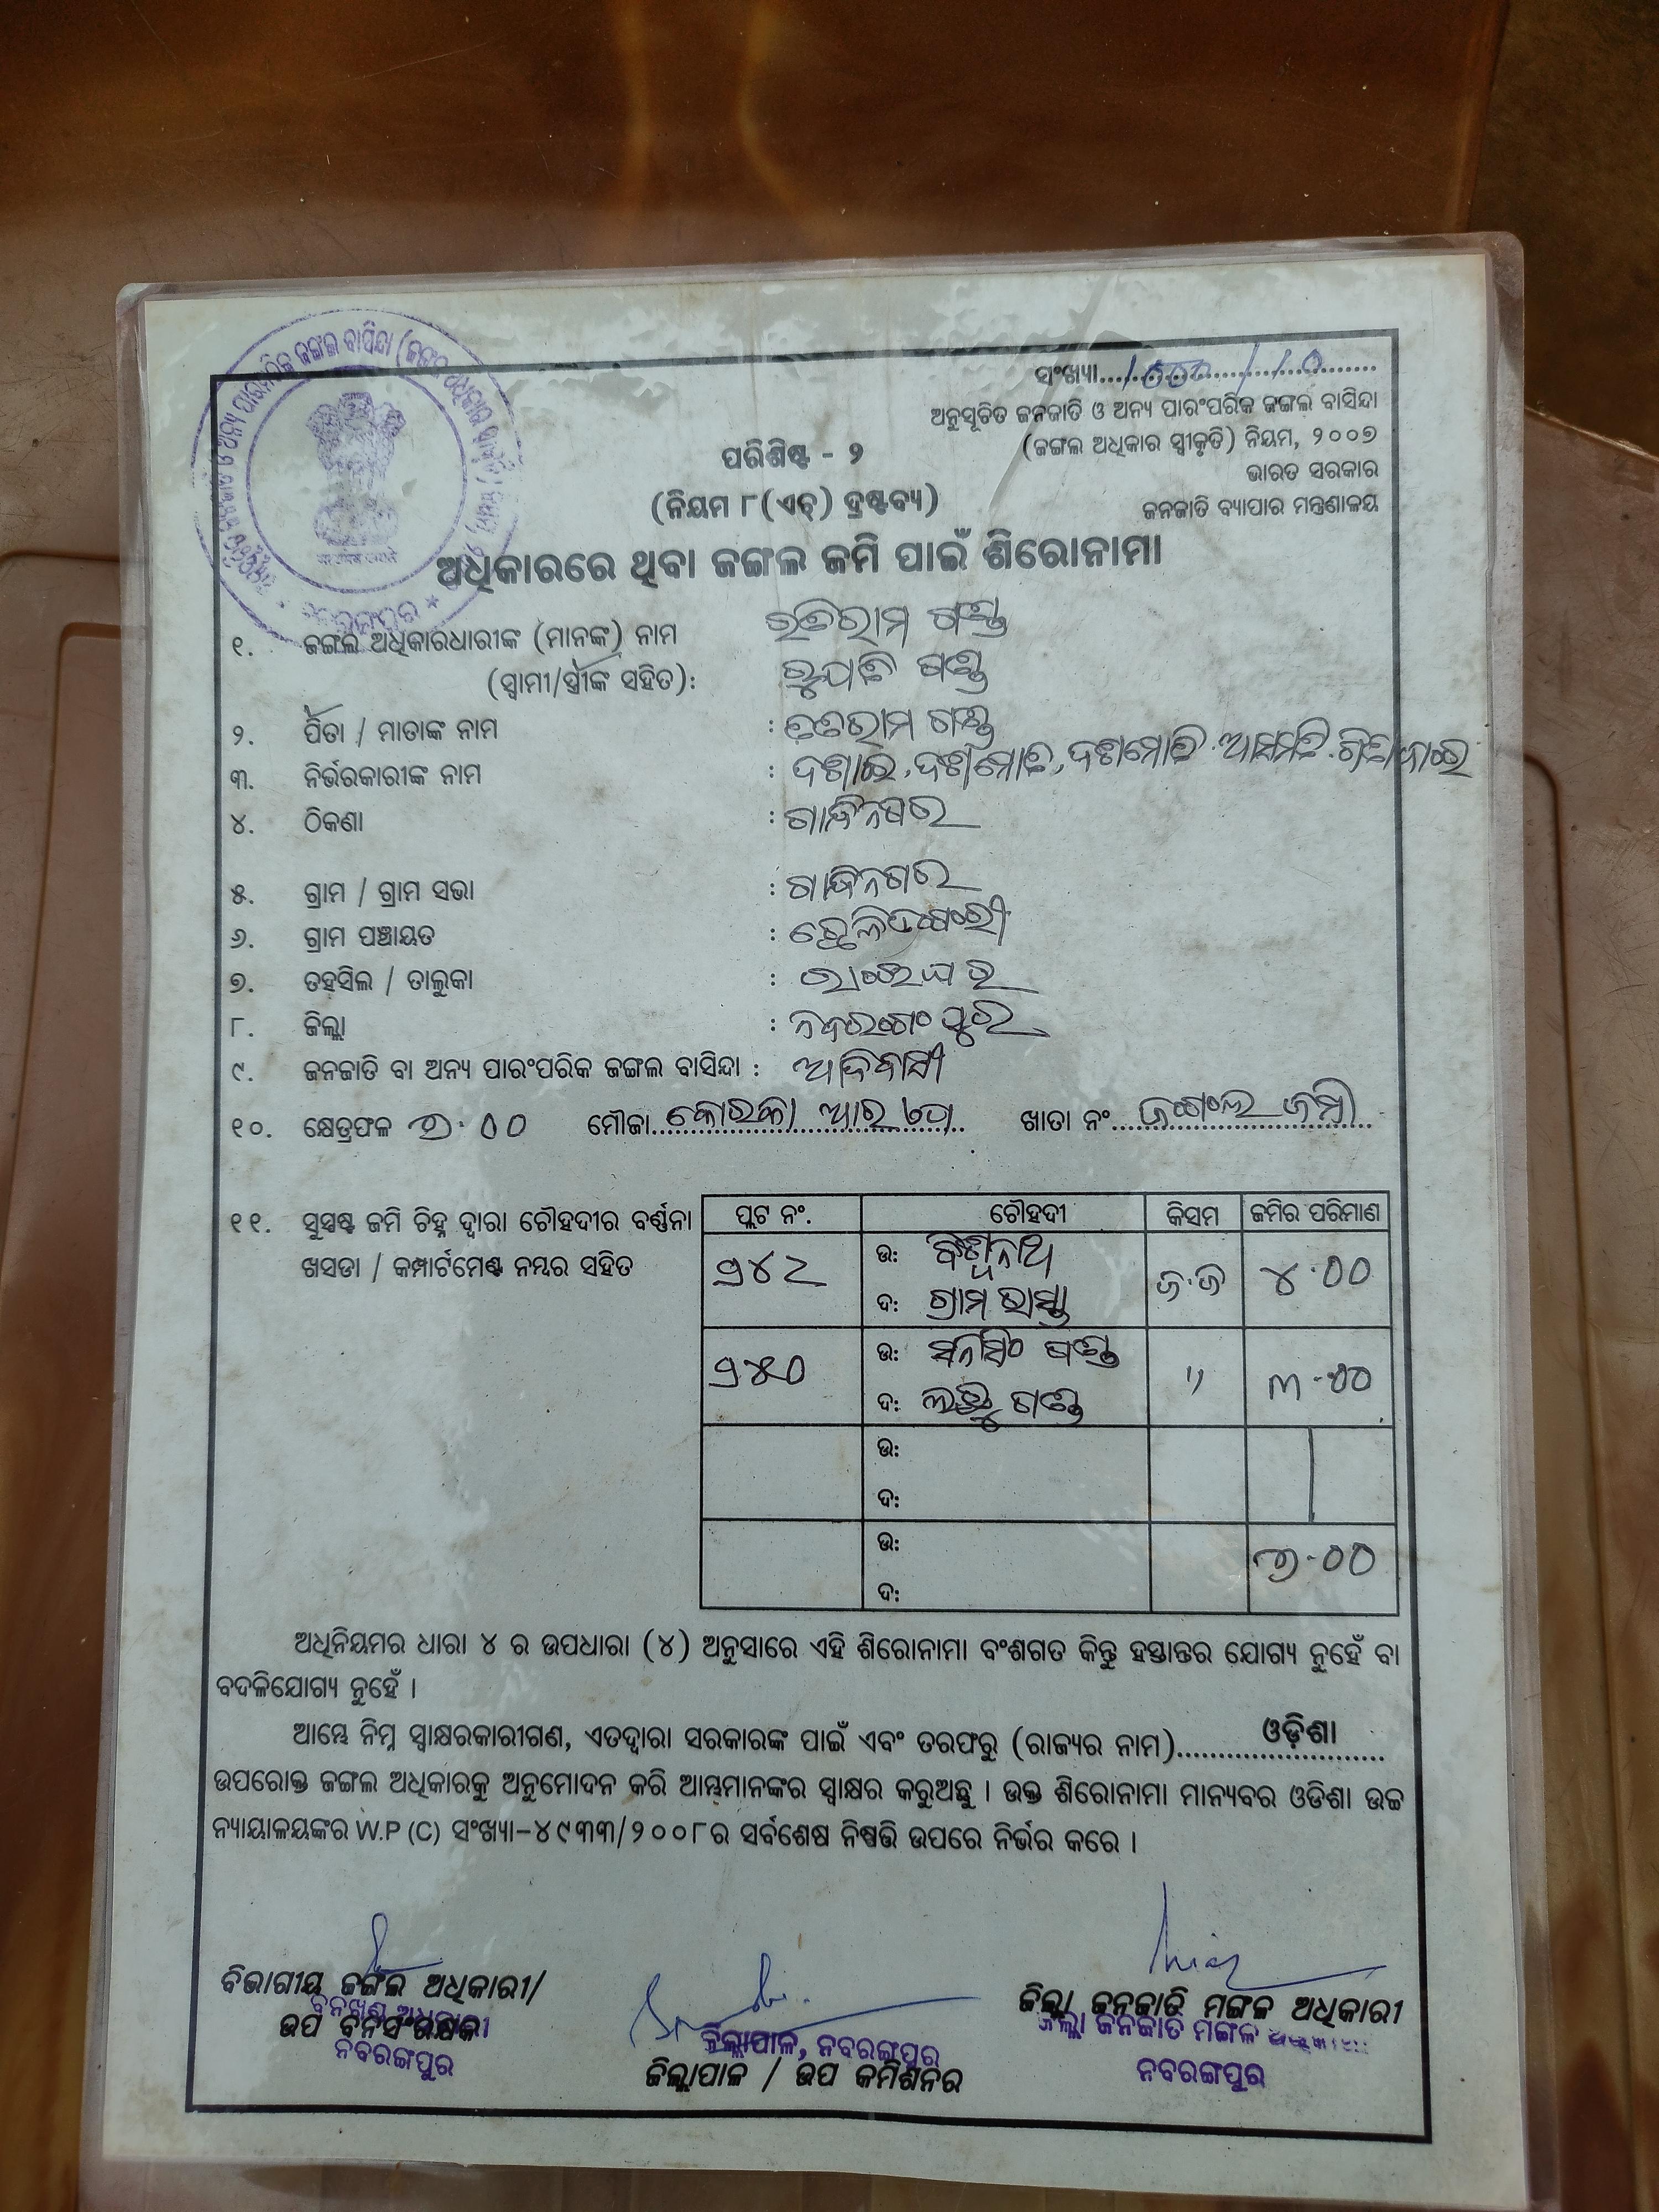 ସଂଖ୍ୟା
ଅନୁସୂଚିତ ଜନଜାତି ଓ ଅନ୍ୟ ପାରଂପରିକ ଜଙ୍ଗଲ ବାସିନ୍ଦା
(ଜଙ୍ଗଲ ଅଧିକାର ସ୍ୱୀକୃତି) ନିୟମ, ୨୦୦୭
ଭାରତ ସରକାର
ଜନଜାତି ବ୍ୟାପାର ମନ୍ତ୍ରଣାଳୟ
ପରିଶିଷ୍ଟ - ୨
(ନିୟମ ୮(ଏଚ୍) ଦ୍ରଷ୍ଟବ୍ୟ)
ଅଧିକାରରେ ଥିବା ଜଙ୍ଗଲ ଜମି ପାଇଁ ଶିରୋନାମା
୧. ଜଙ୍ଗଲ ଅଧିକାରଧାରୀଙ୍କ (ମାନଙ୍କ) ନାମ ଗଣ୍ଡ
(ସ୍ୱାମୀ/ସ୍ତ୍ରୀଙ୍କ ସହିତ): ଗଣ୍ଡ
୨. ପିତା / ମାତାଙ୍କ ନାମ : ଗଣ୍ଡ
୩. ନିର୍ଭରକାରୀଙ୍କ ନାମ :
୪. ଠିକଣା : ଗାନ୍ଧିନଗର
୫. ଗ୍ରାମ / ଗ୍ରାମ ସଭା : ଗାନ୍ଧିନଗର
୬. ଗ୍ରାମ ପଞ୍ଚାୟତ :
୭. ତହସିଲ / ତାଲୁକା : ରାଇଘର
୮. ଜିଲ୍ଲା : ନବରଙ୍ଗପୁର
୯. ଜନଜାତି ବା ଅନ୍ୟ ପାରଂପରିକ ଜଙ୍ଗଲ ବାସିନ୍ଦା : ଆଦିବାସୀ
୧୦. କ୍ଷେତ୍ରଫଳ ୭.୦୦ ମୌଜା ଖାତା ନଂ ଜଙ୍ଗଲ ଜମି
୧୧. ସୁସ୍ପଷ୍ଟ ଜମି ଚିହ୍ନ ଦ୍ୱାରା ଚୌହଦୀର ବର୍ଣ୍ଣନା
ଖସଡା / କମ୍ପାର୍ଟମେଣ୍ଟ ନମ୍ବର ସହିତ
ପ୍ଲଟ ନଂ. ଚୌହଦୀ କିସମ ଜମିର ପରିମାଣ
ଉ: ବିଶ୍ୱନାଥ
୬୪୨ ଜ.ଜ ୪.୦୦
ଦ: ଗ୍ରାମ ରାସ୍ତା
ଉ: ଗଣ୍ଡ
୬୫୦ " ୩.୦୦
ଦ: ଗଣ୍ଡ
ଉ:
ଦ:
ଉ:
୭.୦୦
ଦ:
ଅଧିନିୟମର ଧାରା ୪ ର ଉପଧାରା (୪) ଅନୁସାରେ ଏହି ଶିରୋନାମା ବଂଶଗତ କିନ୍ତୁ ହସ୍ତାନ୍ତର ଯୋଗ୍ୟ ନୁହେଁ ବା
ବଦଳିଯୋଗ୍ୟ ନୁହେଁ ।
ଆମ୍ଭେ ନିମ୍ନ ସ୍ୱାକ୍ଷରକାରୀଗଣ, ଏତଦ୍ୱାରା ସରକାରଙ୍କ ପାଇଁ ଏବଂ ତରଫରୁ (ରାଜ୍ୟର ନାମ) ଓଡ଼ିଶା
ଉପରୋକ୍ତ ଜଙ୍ଗଲ ଅଧିକାରକୁ ଅନୁମୋଦନ କରି ଆମ୍ଭମାନଙ୍କର ସ୍ୱାକ୍ଷର କରୁଅଛୁ । ଉକ୍ତ ଶିରୋନାମା ମାନ୍ୟବର ଓଡିଶା ଉଚ୍ଚ
ନ୍ୟାୟାଳୟଙ୍କର W.P (C) ସଂଖ୍ୟା-୪୯୩୩/୨୦୦୮ର ସର୍ବଶେଷ ନିଷ୍ପତ୍ତି ଉପରେ ନିର୍ଭର କରେ ।
ବିଭାଗୀୟ ଜଙ୍ଗଲ ଅଧିକାରୀ/
ବନଖଣ୍ଡ ଅଧିକାରୀ
ଉପ ବନସଂରକ୍ଷକ
ନବରଙ୍ଗପୁର
ଜିଲ୍ଲାପାଳ, ନବରଙ୍ଗପୁର
ଜିଲ୍ଲାପାଳ / ଉପ କମିଶନର
ଜିଲ୍ଲା ଜନଜାତି ମଙ୍ଗଳ ଅଧିକାରୀ
ଜିଲ୍ଲା ଜନଜାତି ମଙ୍ଗଳ
ନବରଙ୍ଗପୁର